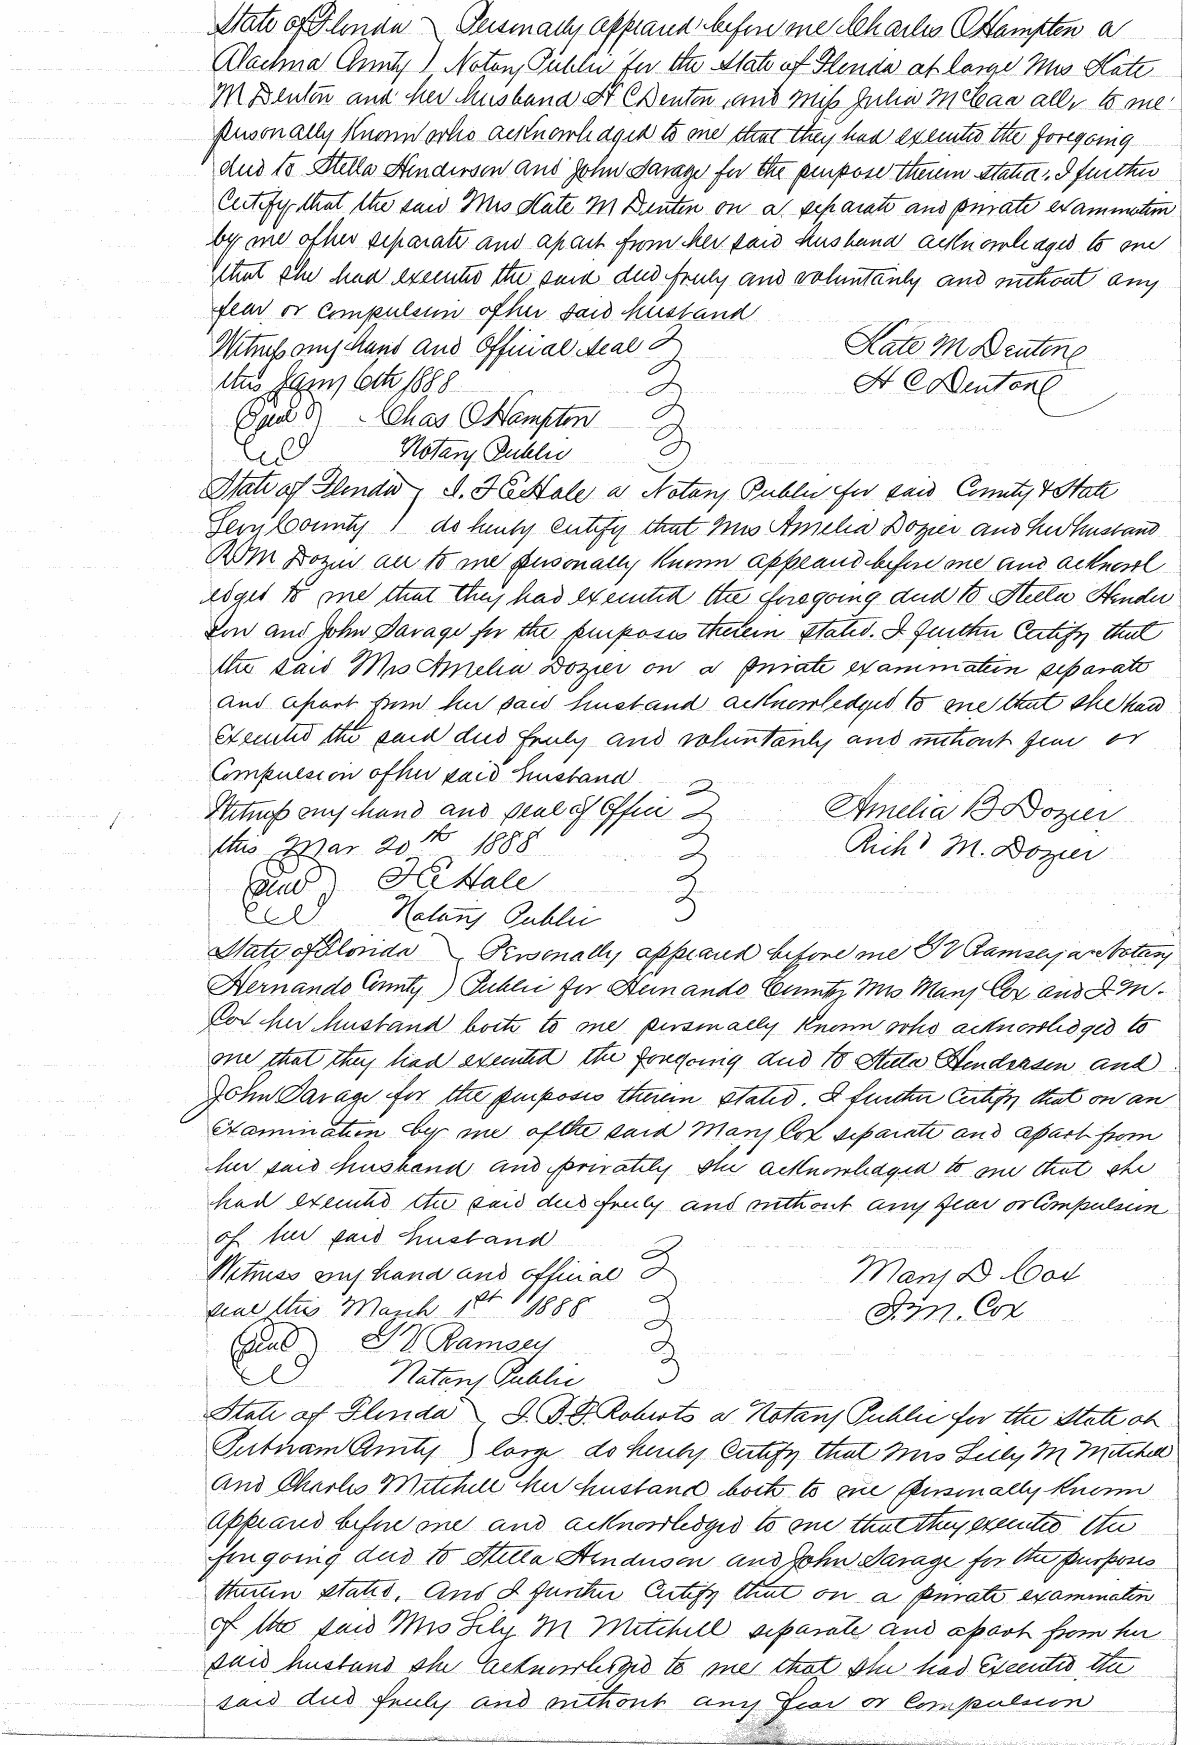 State of Florida } Personally appeared before me Charles O Hampton a
Alachua County } Notary Public for the State of Florida at large Mrs Kate
M Denton and her husband H C Denton, and Miss Julia McCaa all to me
personally Known who acknowledged to me that they had executed the foregoing
deed to Stella Henderson and John Savage for the purpose therein stated. I further
Certify that the said Mrs Kate M Denton on a separate and private examination
by me of her separate and apart from her said husband acknowledged to me
that she had executed the said deed freely and voluntarily and without any
fear or compulsion of her said husband
Witness my hand and Official seal } Kate M Denton
this Jany 6th 1888 } H C Denton
(Seal) Chas O Hampton
Notary Public
State of Florida } I. F E Hale a Notary Public for said County & State
Levy County } do hereby certify that Mrs Amelia Dozier and her husband
R M Dozier all to me personally Known appeared before me and acknowl
edged to me that they had executed the foregoing deed to Stella Hender
son and John Savage for the purposes therein stated. I further Certify that
the said Mrs Amelia Dozier on a private examination separate
and apart from her said husband acknowledged to me that she had
executed the said deed freely and voluntarily and without fear or
Compulsion of her said husband
Witness my hand and seal of Office } Amelia B Dozier
this Mar 20th 1888 } Richd M. Dozier
(Seal) F E Hale
Notary Public
State of Florida } Personally appeared before me G V Ramsey a Notary
Hernando County } Public for Hernando County Mrs Mary Cox and J. M.
Cox her husband both to me personally Known who acknowledged to
me that they had executed the foregoing deed to Stella Henderson and
John Savage for the purposes therein stated. I further Certify that on an
examination by me of the said Mary Cox separate and apart from
her said husband and privately she acknowledged to me that she
had executed the said deed freely and without any fear or Compulsion
of her said husband
Witness my hand and official } Mary D Cox
seal this March 1st 1888 } J. M. Cox
(Seal) G V Ramsey
Notary Public
State of Florida } I. B. F. Roberts a Notary Public for the State at
Putnam County } large do hereby Certify that Mrs Lilly M Mitchell
and Charles Mitchell her husband both to me personally Known
appeared before me and acknowledged to me that they executed the
foregoing deed to Stella Henderson and John Savage for the purposes
therein stated. And I further Certify that on a private examination
of the said Mrs Lily M Mitchell separate and apart from her
said husband she acknowledged to me that she had Executed the
said deed freely and without any fear or Compulsion